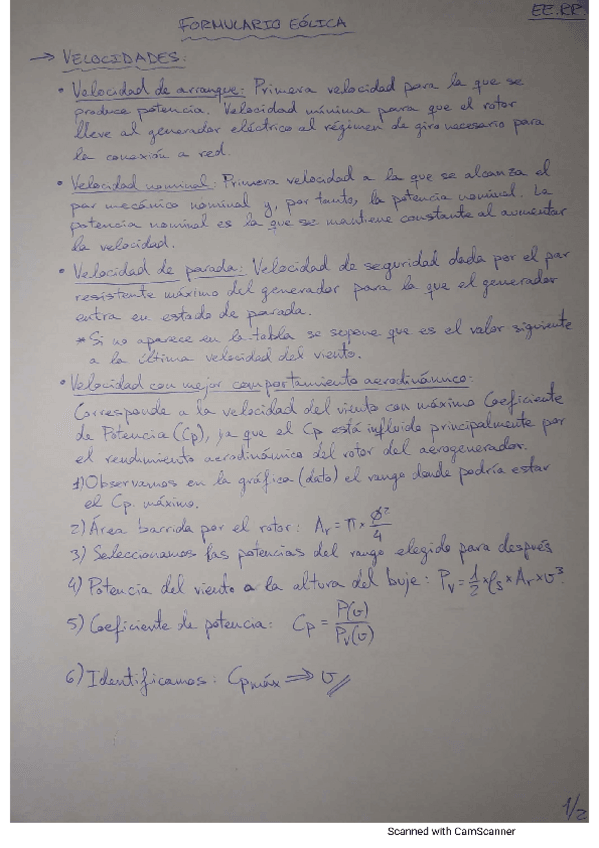 EE.RR.
FORMULARIO EÓLICA
→ VELOCIDADES:
• Velocidad de arranque: Primera velocidad para la que se
produce potencia. Velocidad mínima para que el rotor
lleve al generador eléctrico al régimen de giro necesario para
la conexión a red.
• Velocidad nominal: Primera velocidad a la que se alcanza el
par mecánico nominal y, por tanto, la potencia nominal. La
potencia nominal es la que se mantiene constante al aumentar
la velocidad.
• Velocidad de parada: Velocidad de seguridad dada por el par
resistente máximo del generador para la que el generador
entra en estado de parada.
* Si no aparece en la tabla se supone que es el valor siguiente
a la última velocidad del viento.
• Velocidad con mejor comportamiento aerodinámico:
Corresponde a la velocidad del viento con máximo Coeficiente
de Potencia (Cp), ya que el Cp está influido principalmente por
el rendimiento aerodinámico del rotor del aerogenerador.
1) Observamos en la gráfica (dato) el rango donde podría estar
el Cp. máximo.
2) Área barrida por el rotor: Ar = π × Ø²/4
3) Seleccionamos las potencias del rango elegido para después
4) Potencia del viento a la altura del buje: Pv = 1/2 × ρs × Ar × v³.
5) Coeficiente de potencia: Cp = P(v)/Pv(v)
6) Identificamos: Cpmáx ⇒ v
1/2
Scanned with CamScanner